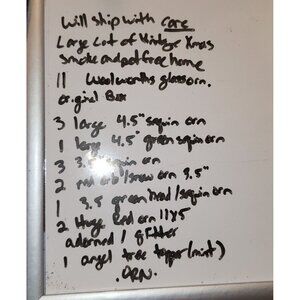 Will ship with care
Large Lot of Vintage Xmas
Smoke and pet free home
11 Woolworths glass orn.
original Box
3 large 4.5" sequin orn
1 large 4.5" green sequin orn
3 3.5" sequin orn
2 red orb/snow orn 3.5"
1 3.5 green bead/sequin orn
2 Huge Red orn 11x5
adorned / glitter
1 angel tree topper (mint)
.ORN.